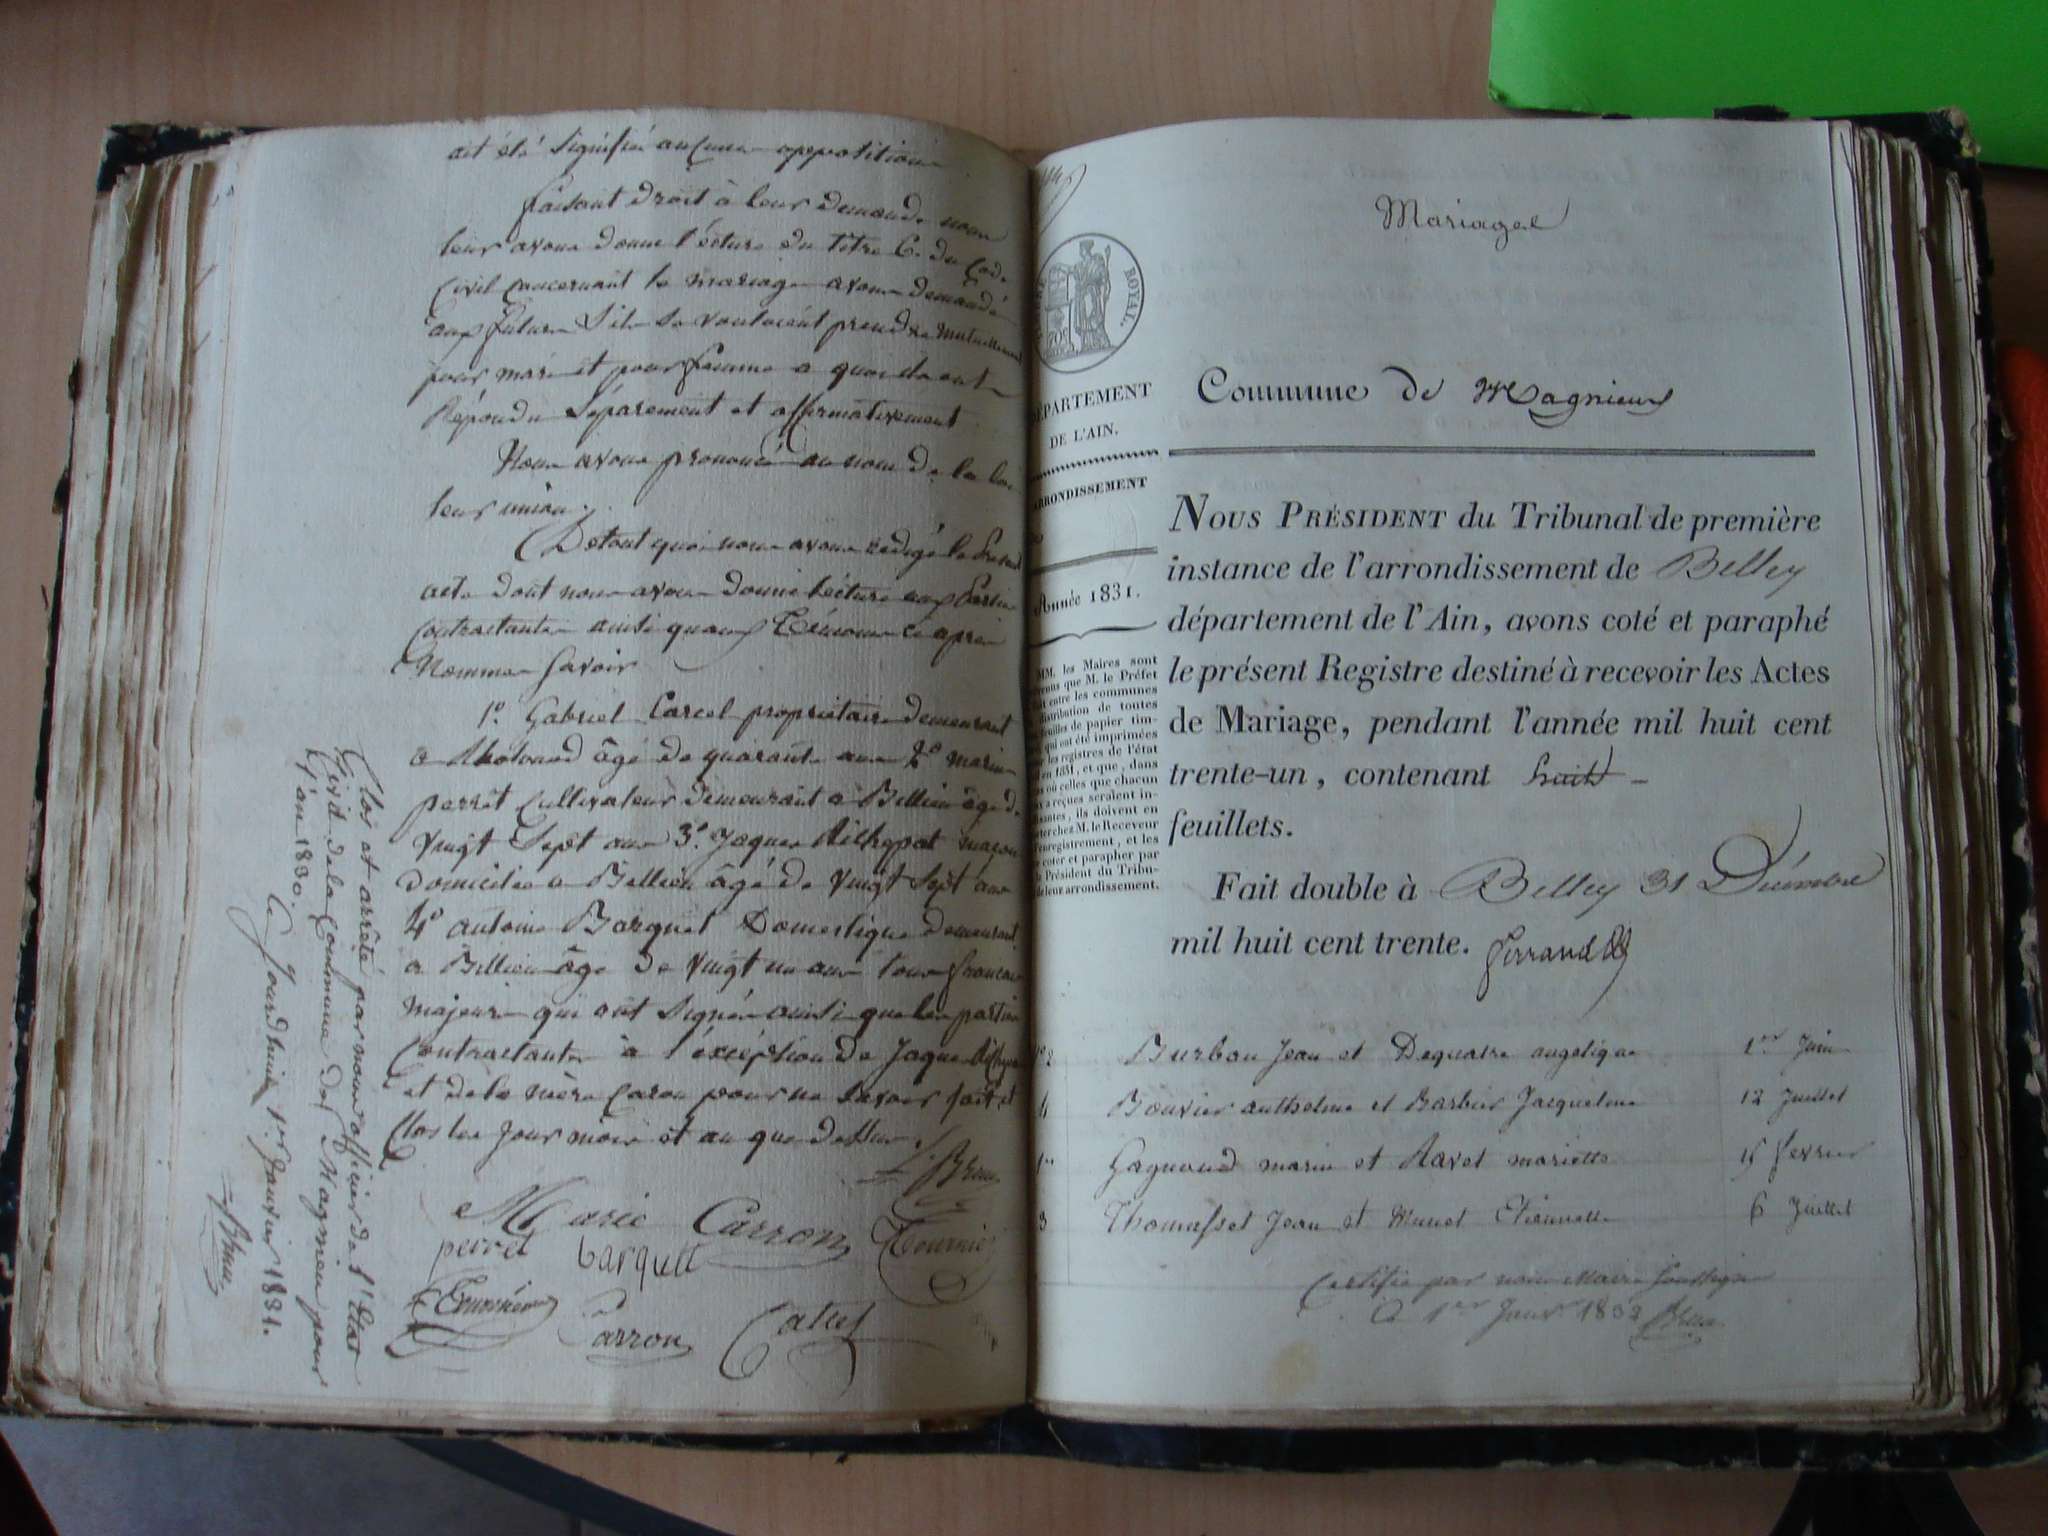 ait été signifié aucune oppotition
faisant droit à leur demande nous
leur avons donné lecture du titre 6. du Code
Civil Concernant le mariage avons demandé
aux futurs s'ils se vouloient prendre mutuellement
pour mari et pour femme a quoi ils ont
Répondu séparement et affirmativement
Nous avons prononcé au nom de la loi
leur union.
De tout quoi nous avons redigé le présent
acte dont nous avons donné lécture aux Parties
Contractantes ainsi quaux Témoins ci après
Nommés Savoir
1º. Gabriel Carcel propriétaire demeurant
a âgé de quarante ans 2º marin
perret Cultivateur demeurant a Bellieu âgé de
vingt Sept ans 3º. Jaques maçon
domicilié a Bellieu âgé de vingt Sept ans
4º antoine Barquet Domestique demeurant
a Bellieu âgé de vingt un ans tous francais
majeurs qui ont signés ainsi que les parties
Contractantes à l'éxcéption de Jaques
et de la mère Caron pour ne savoir fait et
Clos les jour mois et an que dessus.
Brun
Marie Carron
perret barquet Tournier
Carron
Clos et arrêté par nous officier de l'Etat
Civil de la Commune de Magnieu pour
l'an 1830.
Ce Jourd'huit 1er. Janvier 1831.
Brun
Mariages
ROYAL.
70c
DÉPARTEMENT
DE L'AIN.
ARRONDISSEMENT
Année 1831.
MM. les Maires sont
que M. le Préfet
entre les communes
distribution de toutes
feuilles de papier tim-
qui ont été imprimées
les registres de l'état
en 1831, et que, dans
où celles que chacun
a reçues seraient in-
, ils doivent en
chez M. le Receveur
l'enregistrement, et les
coter et parapher par
le Président du Tribu-
de leur arrondissement.
Commune de Magnieux
NOUS PRÉSIDENT du Tribunal de première
instance de l'arrondissement de Belley
département de l'Ain, avons coté et paraphé
le présent Registre destiné à recevoir les Actes
de Mariage, pendant l'année mil huit cent
trente-un, contenant huit
feuillets.
Fait double à Belley 31 Décembre
mil huit cent trente. Ferrand
Burbou Jean et Dequatre angelique 1er Juin
4 Bouvier anthelme et Barbier Jacqueline 12 Juillet
Gagnoud marin et Ravet mariette 15 fevrier
3 Thomasset Jean et Munet Etiennette 6 Juillet
Certifié par nous Maire soussigné
Ce 1er Janvr 1832 Brun